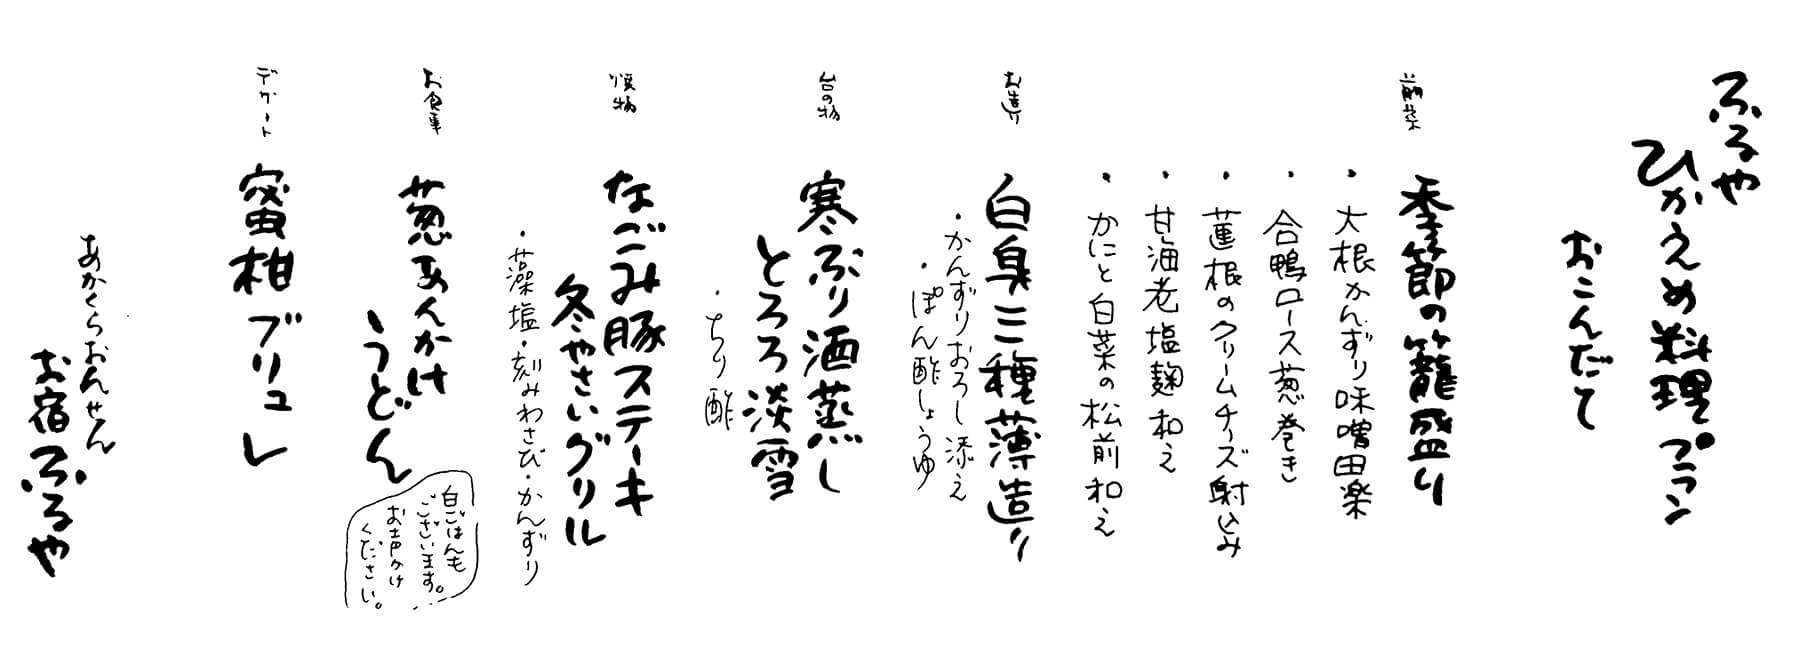 ふるや
ひかえめ料理プラン
おこんだて
前菜
季節の籠盛り
・大根かんずり味噌田楽
・合鴨ロース葱巻き
・蓮根のクリームチーズ射込み
・甘海老塩麹和え
・かにと白菜の松前和え
お造り
白身三種薄造り
・かんずりおろし添え
・ぽん酢しょうゆ
台の物
寒ぶり酒蒸し
とろろ淡雪
・ちり酢
焼物
なごみ豚ステーキ
冬やさいグリル
・藻塩・刻みわさび・かんずり
お食事
葱あんかけ
うどん
白ごはんも
ございます。
お声かけ
ください。
デザート
蜜柑ブリュレ
あかくらおんせん
お宿ふるや